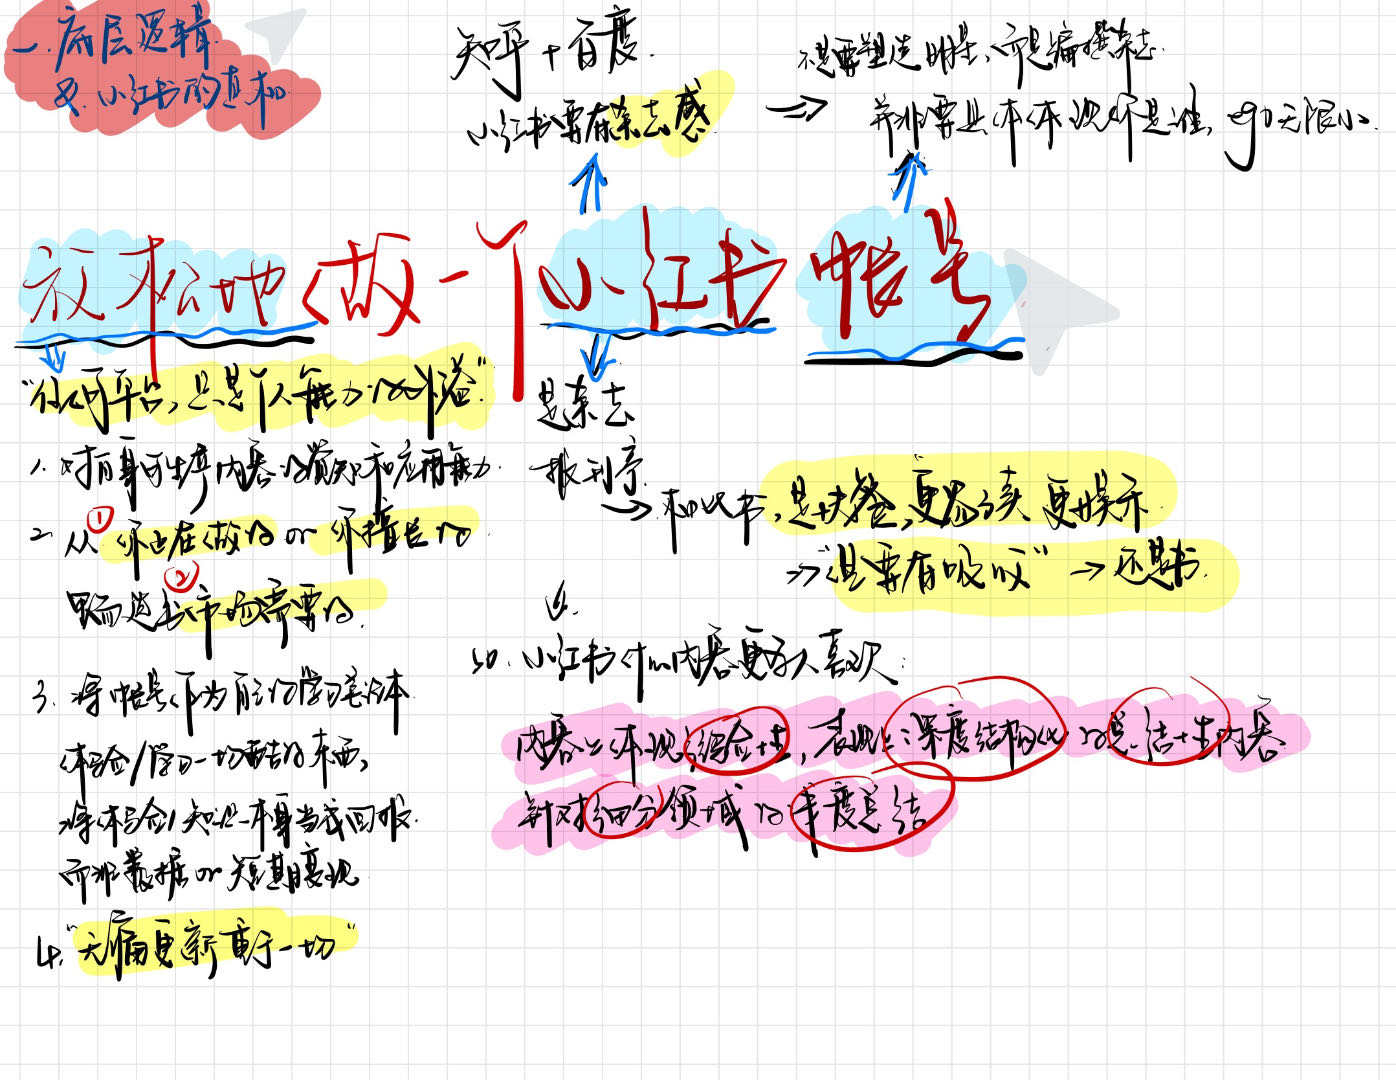 一. 底层逻辑
& 小红书的真相
知乎 + 百度.
小红书要有杂志感
不是要塑造明星, 而是编撰杂志.
并非要具体体现你是谁, ego无限小.
放松地做一个小红书帐号
"任何平台, 只是个人能力的外溢"
1. 对自身可生产内容的认知和应用能力.
2. 从①你正在做的 or 你擅长的
里面选出②市场需要的.
3. 将帐号作为自己的学习载体
体验/学习一切喜的东西,
将体验/知识本身当成回报.
而非数据 or 短期变现.
4. "无痛更新重于一切"
是杂志
报刊亭.
→ 相比书, 是快餐, 更易读 更娱乐
→ "是要有吸收" → 还是书.
so. 小红书什么内容更受人喜欢:
内容上体现经验性, 表现上深度结构化的总结性内容
针对细分领域的年度总结